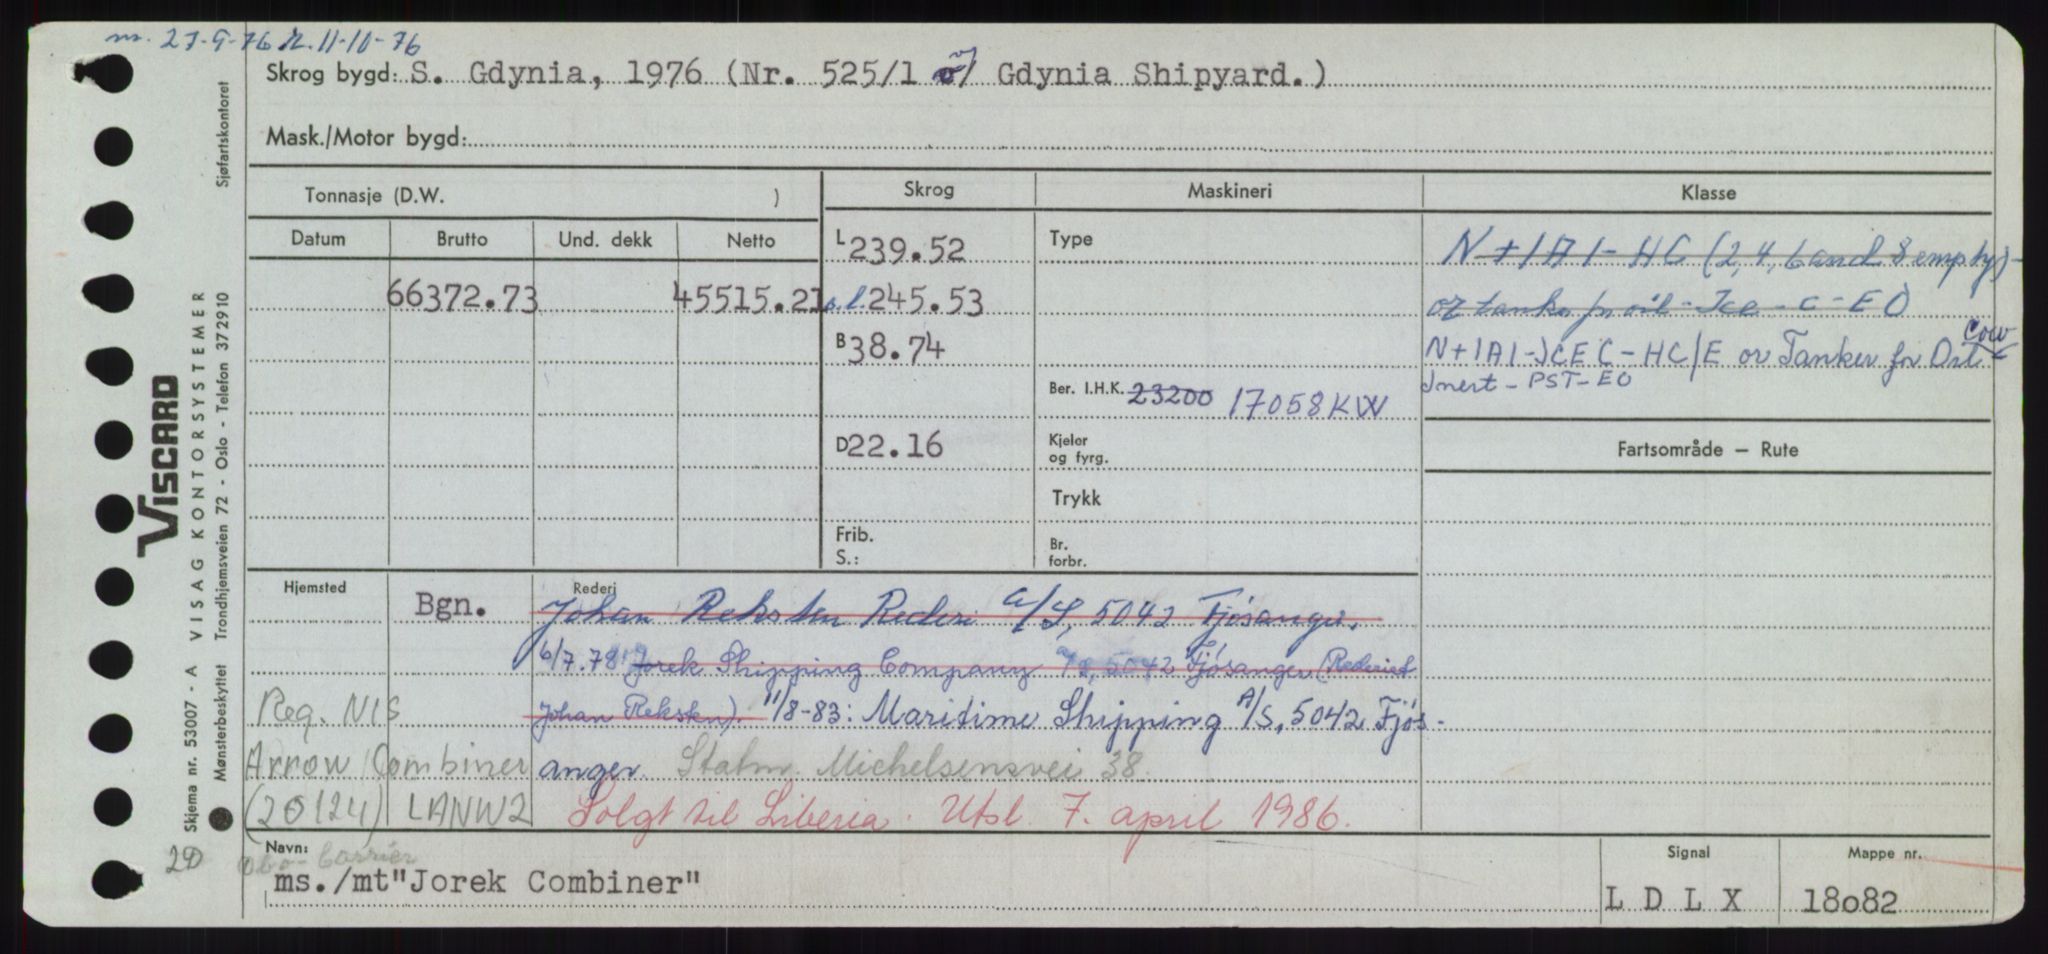 m. 27-9-76 R. 11-10-76
Skrog bygd: S. Gdynia, 1976 (Nr. 525/1 v/ Gdynia Shipyard.)
Mask./Motor bygd:
Tonnasje (D.W. )
Skrog
Maskineri
Klasse
Datum
Brutto
Und. dekk
Netto
L 239.52
Type
N + 1A1 - HC (2, 4, 6 and 8 empty) -
66372.73
45515.21
s.l. 245.53
or tanks for oil - Ice - C - EO
B 38.74
N+1A1-ICE C-HC/E or Tanker for Oil Cow
Ber. I.H.K. 23200 17058KW
Inert - PST - EO
D 22.16
Kjeler
og fyrg.
Fartsområde — Rute
Trykk
Frib.
S.:
Br.
forbr.
Hjemsted
Rederi
Bgn.
Johan Reksten Rederi A/S, 5042 Fjøsanger.
6/7.78 Jorek Shipping Company A/S, 5042 Fjøsanger (Rederiet
Reg. NIS
Johan Reksten). 11/8-83: Maritime Shipping A/S, 5042 Fjøs-
Arrow Combiner
anger. Statm. Michelsensvei 38.
(20124) LANW2
Solgt til Liberia. Utsl. 7. april 1986.
Navn:
Signal
Mappe nr.
2D Obo-Carrier
ms./mt"Jorek Combiner"
L D L X
18o82
Skjema nr. 53007 - A VISAG KONTORSYSTEMER
Mønsterbeskyttet Trondhjemsveien 72 - Oslo - Telefon 372910 Sjøfartskontoret
VISCARD